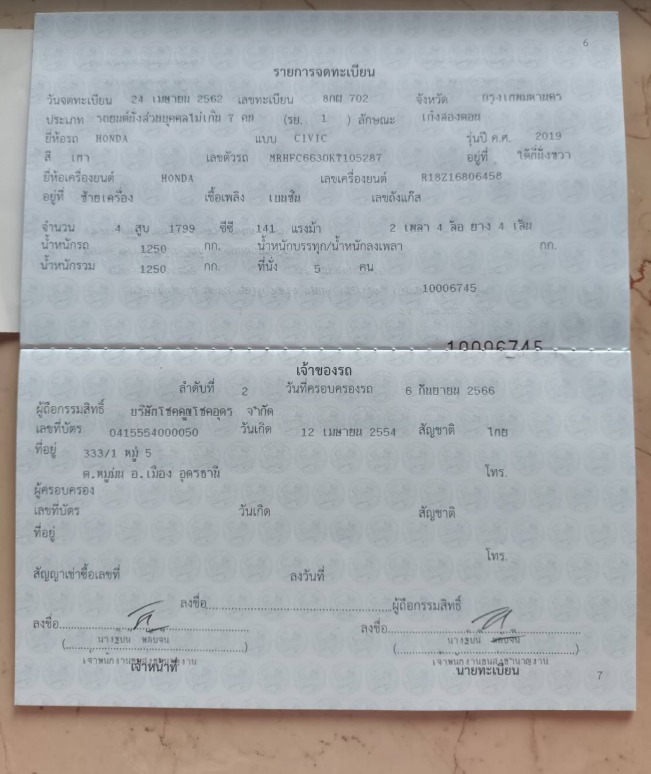 6
รายการจดทะเบียน
วันจดทะเบียน 24 เมษายน 2562 เลขทะเบียน 8กผ 702 จังหวัด กรุงเทพมหานคร
ประเภท รถยนต์นั่งส่วนบุคคลไม่เกิน 7 คน (รย. 1 ) ลักษณะ เก๋งสองตอน
ยี่ห้อรถ HONDA แบบ CIVIC รุ่นปี ค.ศ. 2019
สี เทา เลขตัวรถ MRHFC6630KT105287 อยู่ที่ ใต้ที่นั่งขวา
ยี่ห้อเครื่องยนต์ HONDA เลขเครื่องยนต์ R18Z16806458
อยู่ที่ ซ้ายเครื่อง เชื้อเพลิง เบนซิน เลขถังแก๊ส
จำนวน 4 สูบ 1799 ซีซี 141 แรงม้า 2 เพลา 4 ล้อ ยาง 4 เส้น
น้ำหนักรถ 1250 กก. น้ำหนักบรรทุก/น้ำหนักลงเพลา กก.
น้ำหนักรวม 1250 กก. ที่นั่ง 5 คน
10006745
10006745
เจ้าของรถ
ลำดับที่ 2 วันที่ครอบครองรถ 6 กันยายน 2566
ผู้ถือกรรมสิทธิ์ บริษัทโชคคูณโชคอุดร จำกัด
เลขที่บัตร 0415554000050 วันเกิด 12 เมษายน 2554 สัญชาติ ไทย
ที่อยู่ 333/1 หมู่ 5
ต.หมูม่น อ.เมือง อุดรธานี โทร.
ผู้ครอบครอง
เลขที่บัตร วันเกิด สัญชาติ
ที่อยู่
โทร.
สัญญาเช่าซื้อเลขที่ ลงวันที่
ลงชื่อ ผู้ถือกรรมสิทธิ์
ลงชื่อ ลงชื่อ
เจ้าพนักงานขนส่งชำนาญงาน เจ้าพนักงานขนส่งชำนาญงาน
เจ้าหน้าที่ นายทะเบียน
7